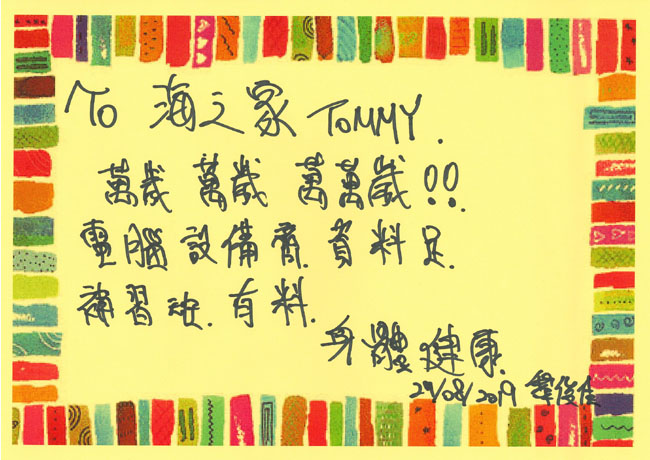 To 海之家 TOMMY.
萬歲 萬歲 萬萬歲!!
電腦設備齊.資料足.
補習班.有料.
身體健康
29/08/2019 俊佳